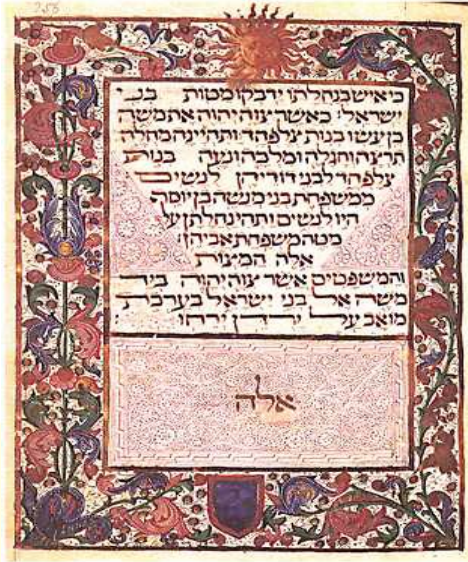 256
כי איש בנחלתו ידבקו מטות בני
ישראל׃ כאשר צוה יהוה את משה
כן עשו בנות צלפחד׃ ותהיינה מחלה
תרצה וחגלה ומלכה ונעה בנות
צלפחד לבני דודיהן לנשים
ממשפחת בני מנשה בן יוסף
היו לנשים ותהי נחלתן על
מטה משפחת אביהן׃
אלה המצות
והמשפטים אשר צוה יהוה ביד
משה אל בני ישראל בערבת
מואב על ירדן ירחו׃
אלה